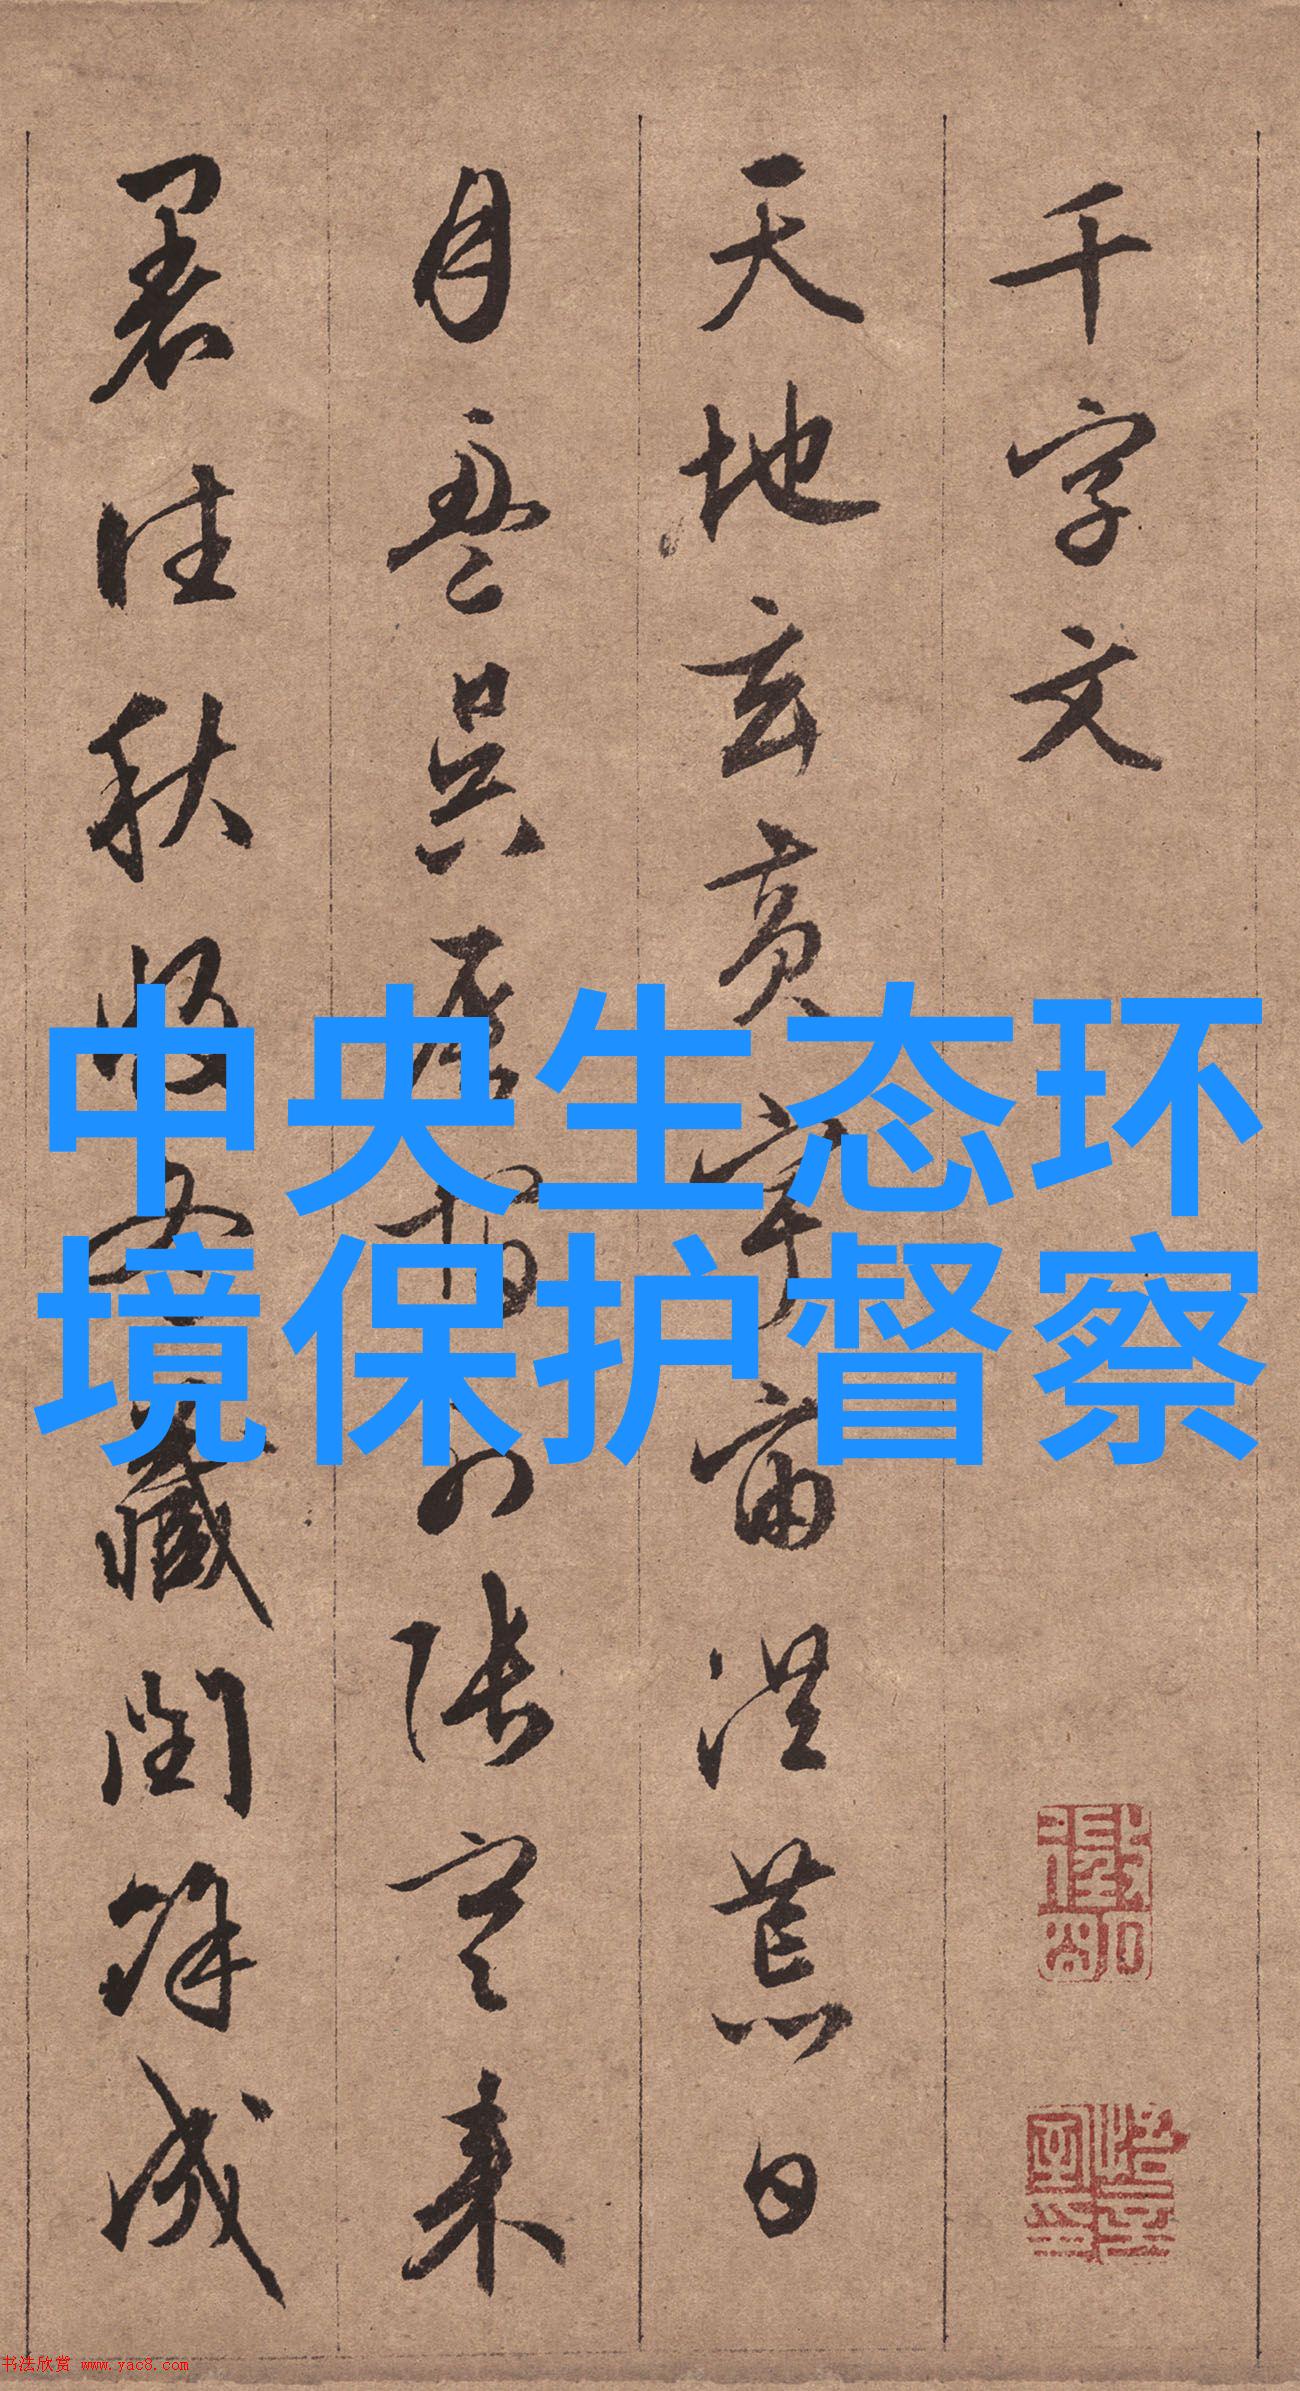 千字文
天地玄黄宇宙洪荒日
月盈昃辰宿列张寒来
暑往秋收冬藏闰馀成
中央生态环
境保护督察
书法欣赏 www.yac8.com